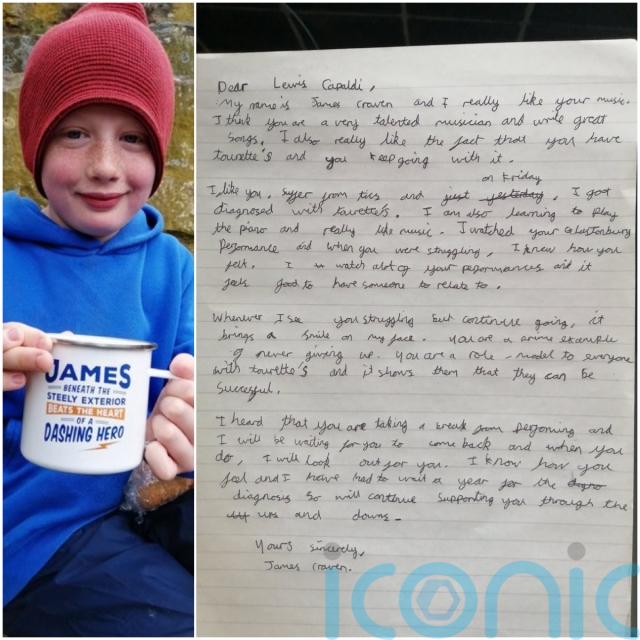 JAMES
BENEATH THE
STEELY EXTERIOR
BEATS THE HEART
OF A
DASHING HERO
Dear Lewis Capaldi,
My name is James Craven and I really like your music.
I think you are a very talented musician and write great
songs. I also really like the fact that you have
tourette's and you keep going with it.
on Friday
I like you, suffer from tics and just yesterday, I got
diagnosed with tourette's. I am also learning to play
the piano and really like music. I watched your Glastonbury
performance and when you were struggling, I knew how you
felt. I watch alot of your performances and it
feels good to have someone to relate to.
Whenever I see you struggling but continue going, it
brings a smile on my face. You are a prime example
of never giving up. You are a role-model to everyone
with tourette's and it shows them that they can be
successful.
I heard that you are taking a break from performing and
I will be waiting for you to come back and when you
do, I will look out for you. I know how you
feel and I have had to wait a year for the
diagnosis so will continue supporting you through the
ups and downs.
Yours sincerely,
James Craven.
iconic